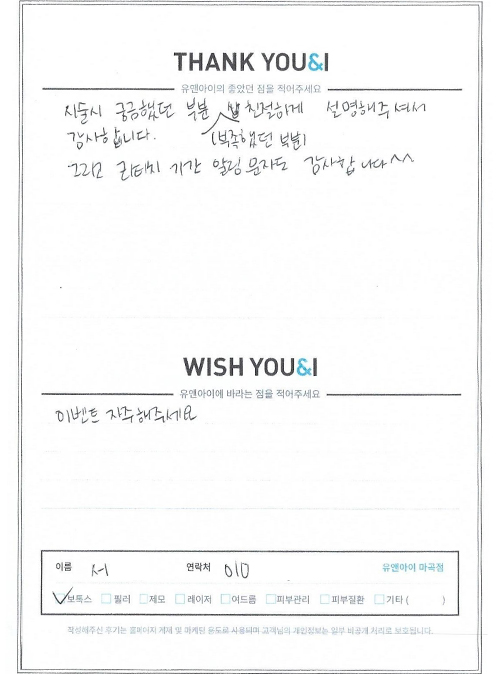 THANK YOU&I
유앤아이의 좋았던 점을 적어주세요
시술시 궁금했던 부분 친절하게 설명해주셔서
감사합니다. (부족했던 부분)
그리고 리터치 기간 알림 문자도 감사합니다^^
WISH YOU&I
유앤아이에 바라는 점을 적어주세요
이벤트 자주해주세요
이름 서 연락처 010 유앤아이 마곡점
보톡스 필러 제모 레이저 여드름 피부관리 피부질환 기타 ( )
작성해주신 후기는 홈페이지 게재 및 마케팅 용도로 사용되며 고객님의 개인정보는 일부 비공개 처리로 보호됩니다.